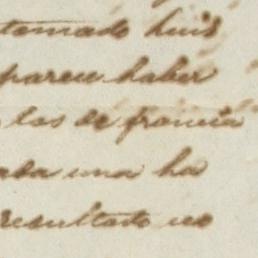 tomado Luis
parecu haber
los de francia
aba una ha
resultado no